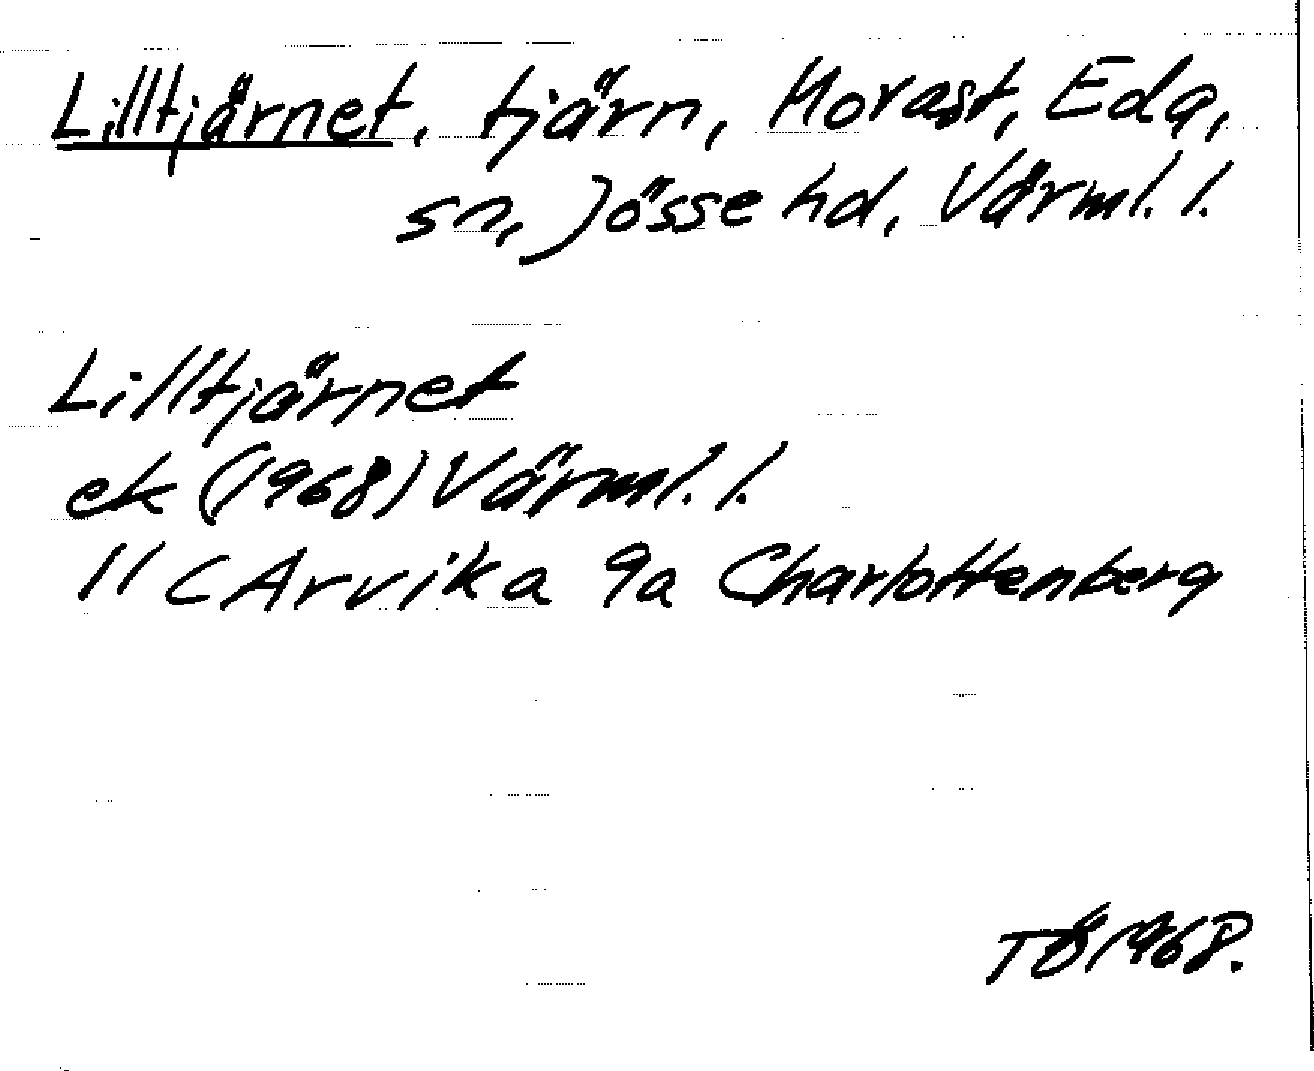 Lilltjärnet, tjärn, Morast, Eda,
sn, Jösse hd, Värml. l.
Lilltjärnet
ek (1968) Värml. l.
11 C Arvika 9a Charlottenberg
TÖ 1968.